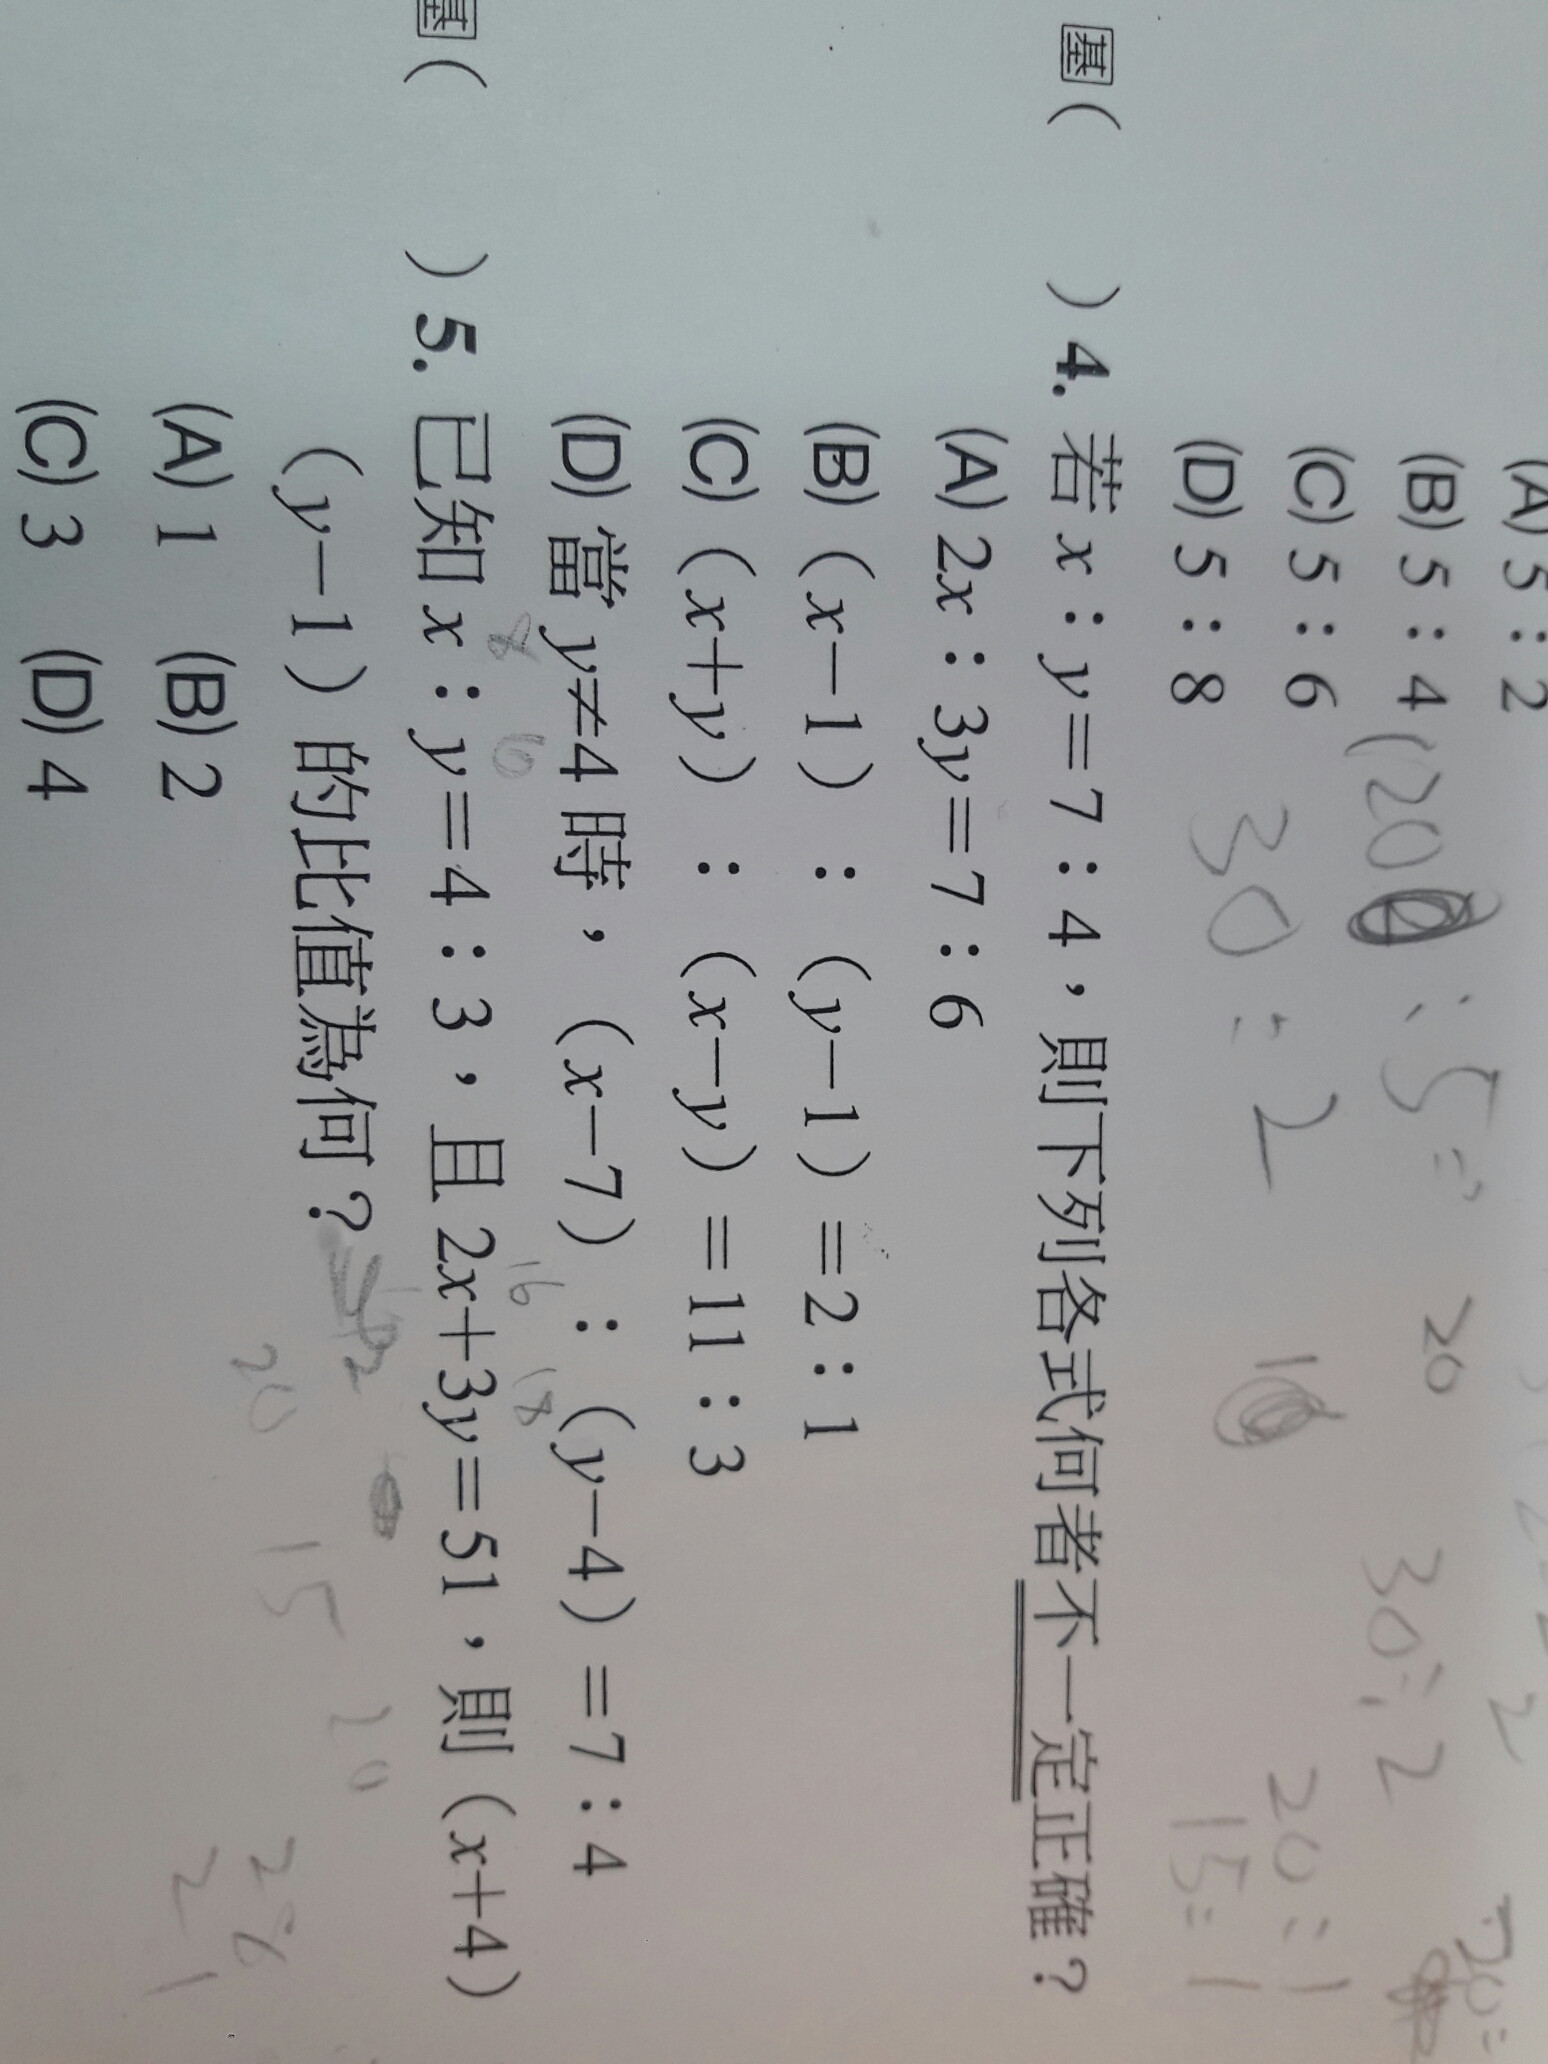 (A) 5：2
(B) 5：4 (20 : 5 = 20 30 : 2
(C) 5：6
(D) 5：8 30 : 2
20 : 1
15 : 1
基（ ）4. 若 x：y＝7：4，則下列各式何者不一定正確？
(A) 2x：3y＝7：6
(B)（x－1）：（y－1）＝2：1
(C)（x＋y）：（x－y）＝11：3
(D) 當 y≠4 時，（x－7）：（y－4）＝7：4
8 6 16 18
基（ ）5. 已知 x：y＝4：3，且 2x＋3y＝51，則（x＋4）：
（y－1）的比值為何？
(A) 1 (B) 2
(C) 3 (D) 4
20 15